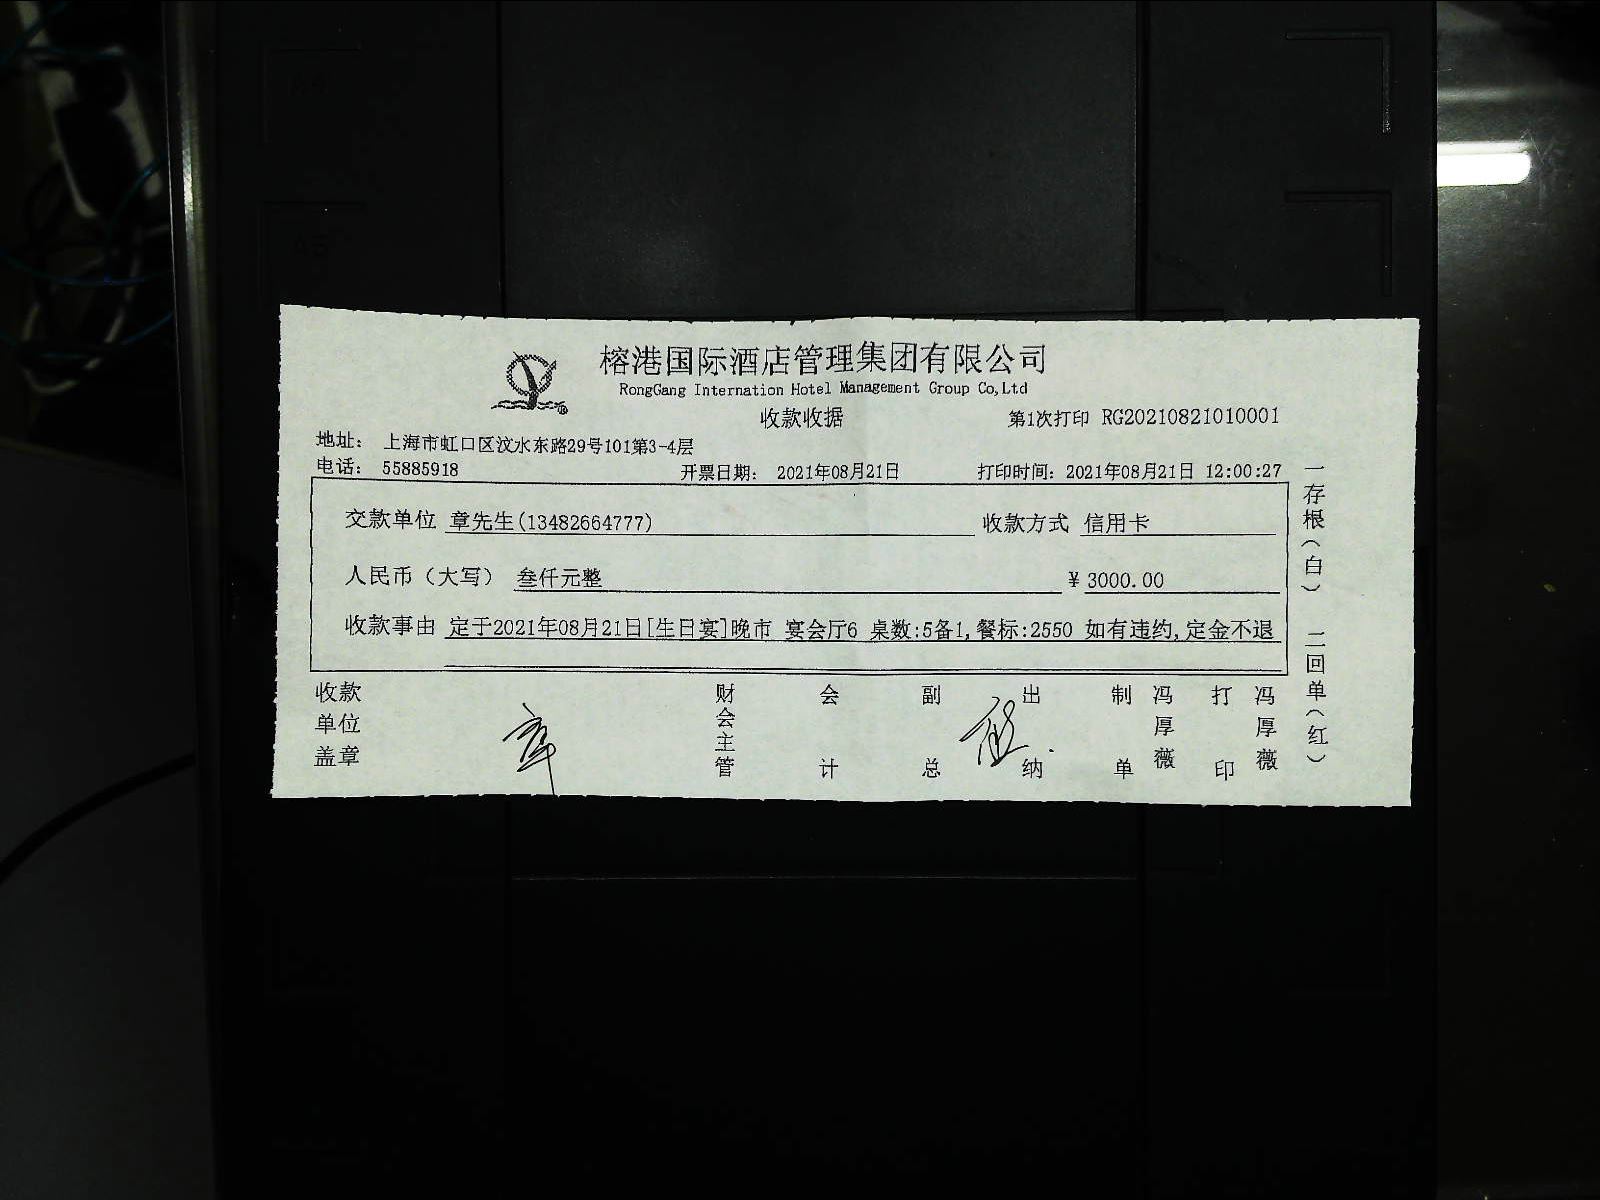 榕港国际酒店管理集团有限公司
RongGang Internation Hotel Management Group Co,Ltd
收款收据 第1次打印 RG20210821010001
地址： 上海市虹口区汶水东路29号101第3-4层
电话： 55885918 开票日期： 2021年08月21日 打印时间： 2021年08月21日 12:00:27
交款单位 章先生(13482664777) 收款方式 信用卡
人民币（大写） 叁仟元整 ¥ 3000.00
收款事由 定于2021年08月21日[生日宴]晚市 宴会厅6 桌数:5备1,餐标:2550 如有违约,定金不退
收款单位盖章 章 财会主管 会计 副总 出纳 制单 冯厚薇 打印 冯厚薇
一存根（白） 二回单（红）
A5